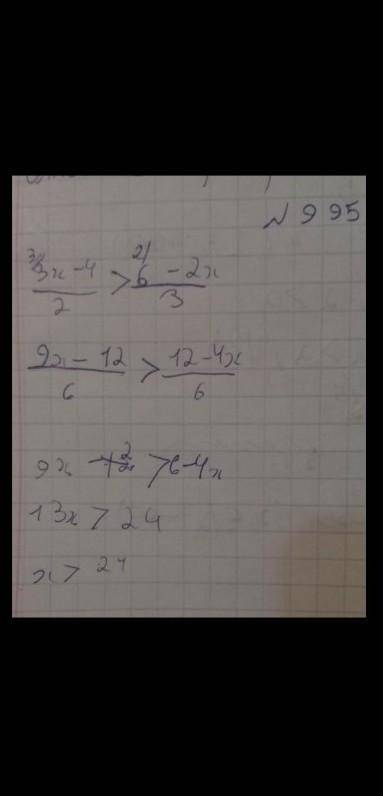 № 995
3/ 3x - 4 / 2 > 2/ 6 - 2x / 3
9x - 12 / 6 > 12 - 4x / 6
9x > 6 - 4x
13x > 24
x > 24